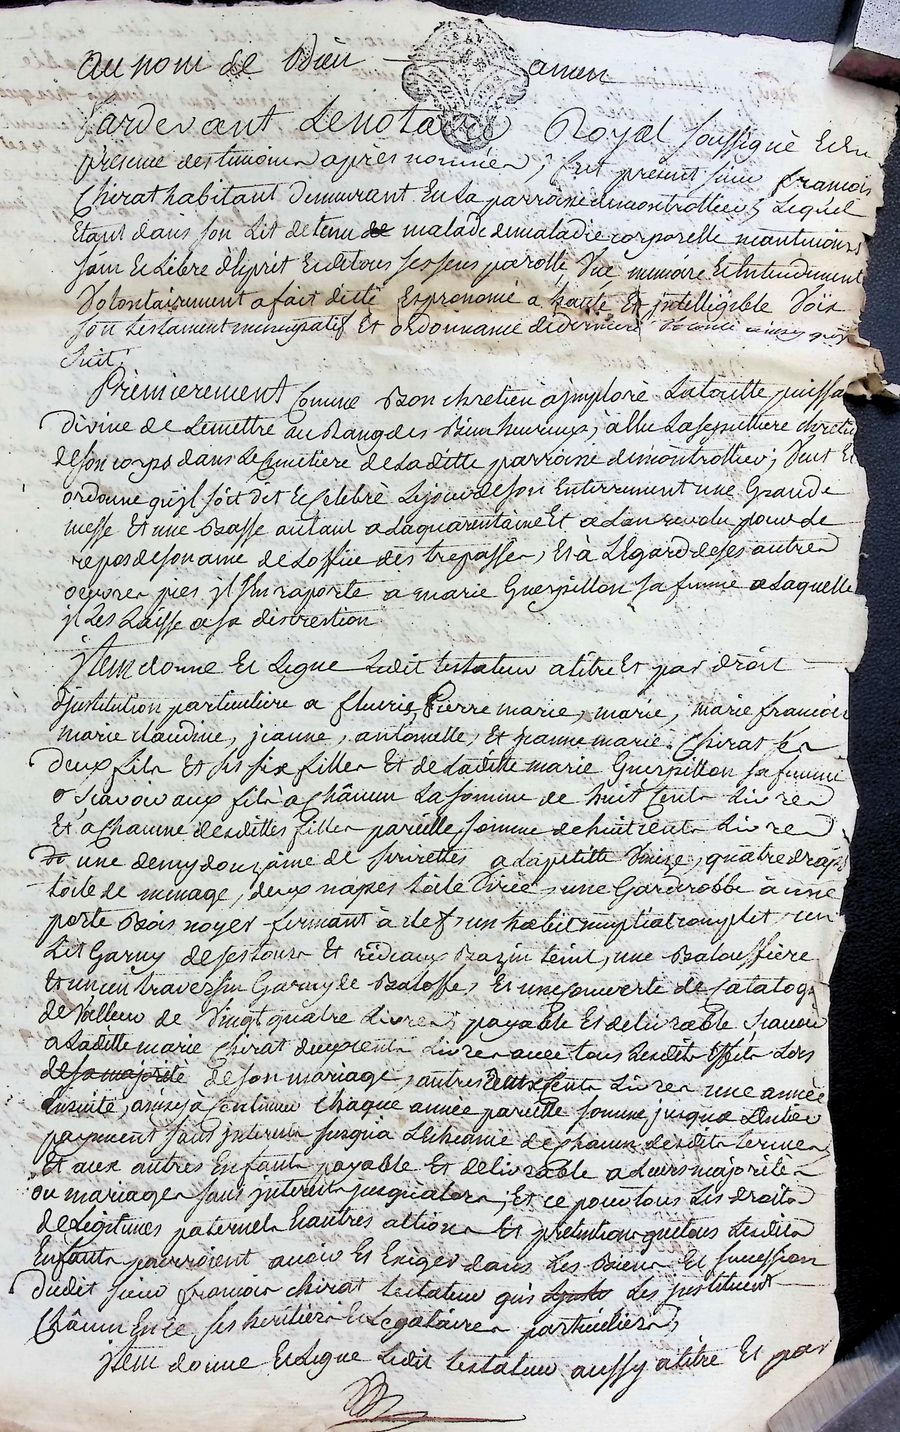 au nom de Dieu amen
Pardevant Le notaire Royal soussigné et en
presence des temoins apres nommés, fut present sieur francois
Chirat habitant demeurant En La parroisse de montrottier, Lequel
Etant dans son Lit detenu de malade de maladie corporelle neantmoins
sain et Libre d'Esprit et de tous ses sens parolle, vuë memoire et Entendement
Volontairement a fait dicté Et prononcé a haute Et jntelligible Voix
son testament nuncupatif Et ordonnance de derniere volonté ainsy qu'il
suit.
Premierement Comme Bon chretien a jmploré La toutte puissa
divine de Le mettre au Rang des Bien heureux, a Elu La sepulture chretie
de son corps dans Le Cimetiere de La ditte parroisse de montrottier; Veut Et
ordonne qu'jl soit dit Et Celebré Le jour de son Enterrement une Grande
messe Et une Basse autant a La quarentaine Et a L'an revolu pour Le
repos de son ame de L'office des trepassés, Et à L'Egard de ses autres
oeuvres pies jl s'En raporte a marie Guerpillon sa femme a Laquelle
jl Les Laisse a sa discrestion
jtem donne Et Legue Ledit testateur a titre Et par droit
d'jnstitution particuliere a fleurie, Pierre marie, marie, marie francoise
marie claudine, jeanne, antoinette, Et jeanne marie Chirat ses
deux fils Et ses six filles Et de La ditte marie Guerpillon sa femme
Scavoir aux fils à Châcun La somme de huit Cents Livres
Et à Chacune desdittes filles pareille somme de huit cents Livres
une demy douzaine de serviettes a La petitte Venize, quatre draps
toile de menage, deux napes toile Virée, une Garderobbe à une
porte Bois noyer fermant à clef, un habit nuptial complet, un
Lit Garny de ses tours Et rideaux Bazin teint, une Balouffiere
Et un traversin Garny de Baloffe, Et une Couverte de Catalog
de Valleur de Vingt quatre Livres, payable Et delivrable scavoir
a La ditte marie Chirat deux cents Livres avec tous Lesdits Effets Lors
de sa majorité de son mariage, autres deux Cents Livres une année
Ensuite, ainsy à Continuer Chaque année pareille somme jusqua L'entier
payement sans jnterets jusqua L'Echeance de Chacun desdits termes
Et aux autres Enfants payable Et delivrable a Leurs majorités
ou mariages sans jnterets jusqu'alors, Et ce pour tous Les droits
de Legitimes paternels Et autres actions Et pretentions que tous Lesdits
Enfants pourroient avoir Et Exiger dans Les Biens Et succession
dudit sieur francois chirat testateur qui Les jnstituent
Châcun En ce, ses heritiers Et Legataires particuliers,
jtem donne Et Legue Ledit testateur aussy a titre Et par